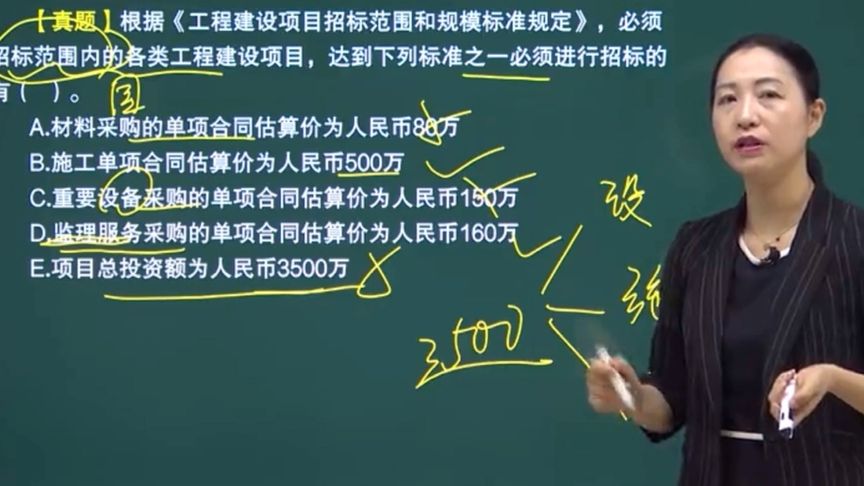 【真题】根据《工程建设项目招标范围和规模标准规定》，必须
招标范围内的各类工程建设项目，达到下列标准之一必须进行招标的
有（ ）。
A.材料采购的单项合同估算价为人民币80万
B.施工单项合同估算价为人民币500万
C.重要设备采购的单项合同估算价为人民币150万
D.监理服务采购的单项合同估算价为人民币160万
E.项目总投资额为人民币3500万
设
3500